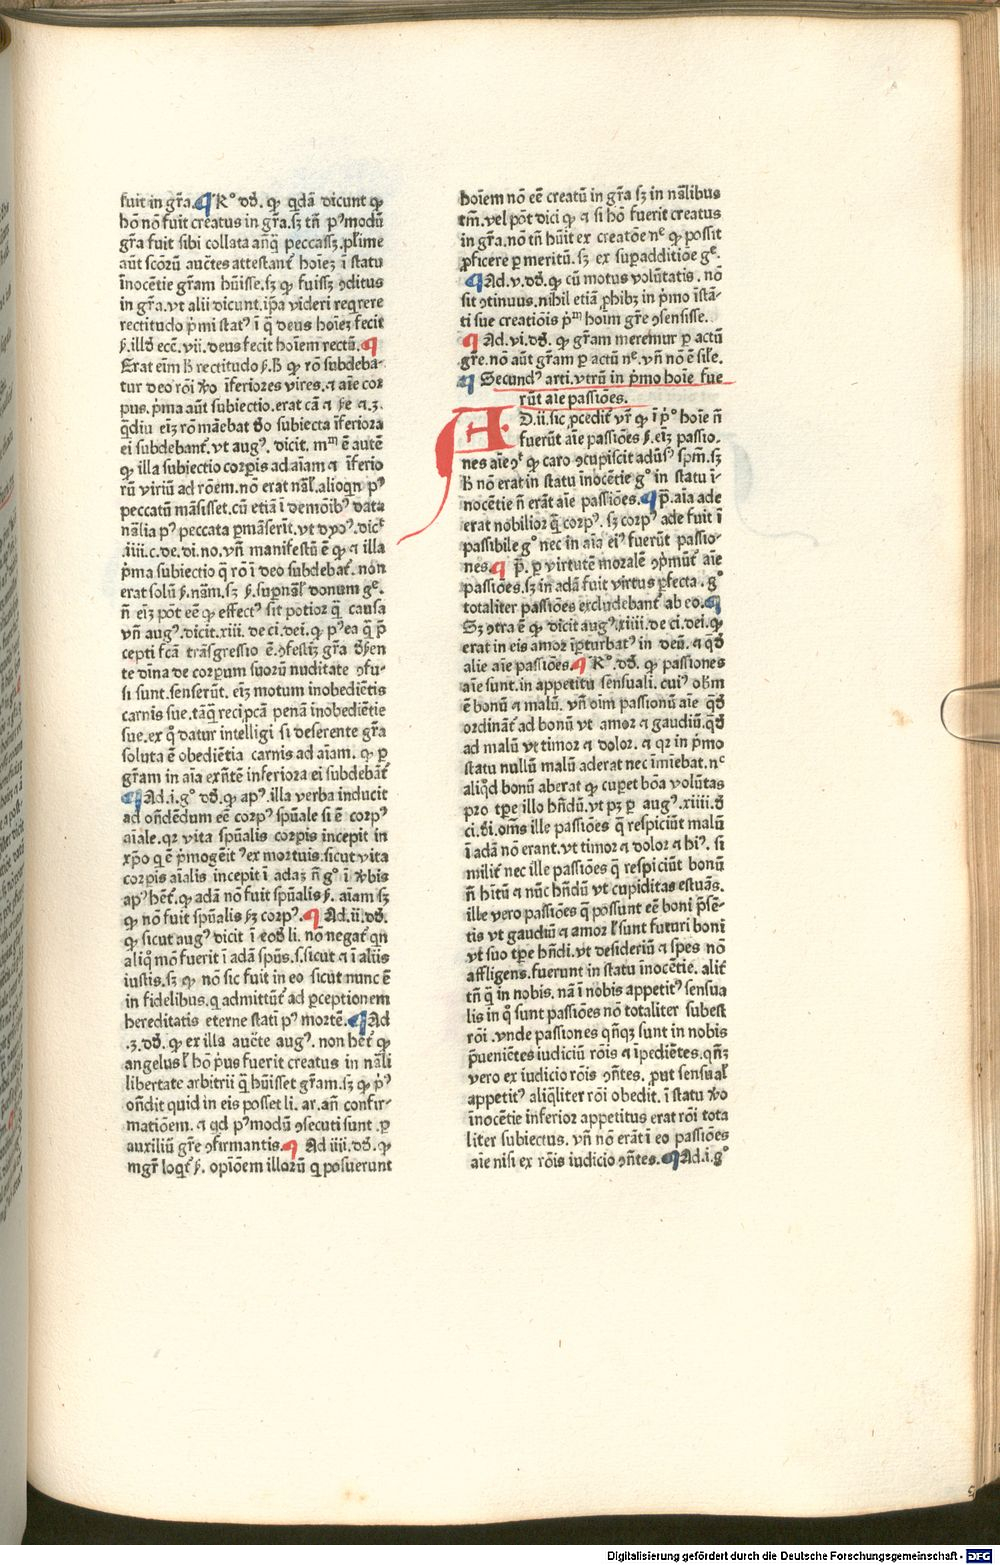 fuit in gr̄a. ¶ Rº dd̄. ꝙ qdā dicunt ꝙ
hō nō fuit creatus in gr̄a. sꝫ tn̄ pꝰmodū
gr̄a fuit sibi collata anq̄ꝫ peccassꝫ. pl̄ime
aūt scōrū auctēs attestant᷑ hoīeꝫ ī statu
īnocētie gr̄am hūisse. sꝫ ꝙ fuissꝫ ꝯditus
in gr̄a. vt alii dicunt. ip̄a videri reqrere
rectitudo p̄mi statꝰ ī q̄ deus hoīeꝫ fecit
ẜ. illđ ecc̄. vii. deus fecit hoīem rectū. ¶
Erat eīm ħ rectitudo ẜ. ħ ꝙ rō subdeba-
tur deo rōi ꝟo īferiores vires. ⁊ aīe cor
pus. p̄ma aūt subiectio. erat cā ⁊ ẜe ⁊.3.
q̄diu eiꝫ rō māebat đo subiecta īferiora
ei subdebant᷑. vt augꝰ. dicit. mᵐ ē autē
ꝙ illa subiectio corꝑis ad aīam ⁊ īferio
rū viriū ad rōem. nō erat nāl᷑. alioqn pꝰ
peccatū māsisset. cū etiā ī demōibꝰ data
nālia pꝰ peccata ꝑmāserit. vt dyoꝰ. dicᵗ
.iiii. c. de. di. no. vn̄ manifestū ē ꝙ ⁊ illa
p̄ma subiectio q̄ rō ī deo subdebat᷑. non
erat solū ẜ. nām. sꝫ ẜ. suꝑnāl᷑ donum gᵉ.
n̄ eiꝫ pōt eē ꝙ effectꝰ sit potior q̄ꝫ causa
vn̄ augꝰ. dicit. xiii. de ci. dei. ꝙ pꝰea q̄ꝫ p̄
cepti fcā trāsgressio ē. ꝯfestiꝫ gr̄a đẜen
te dīna de corꝑum suorū nuditate ꝯfu-
si sunt. senserūt. eiꝫ motum inobediētis
carnis sue. tāq̄ꝫ recip̄cā penā inobediētie
sue. ex q̊ datur intelligi si deserente gr̄a
soluta ē obediētia carnis ad aīam. ꝙ ꝑ
gr̄am in aīa exn̄tē inferiora ei subdebāt᷑
¶ Ad. i. gº dd̄. ꝙ apꝰ. illa verba inducit
ad on̄dēdum eē corpꝰ spūale si ē corpꝰ
aīale. qꝛ vita spūalis corꝑis incepit in
xp̄o q ē p̄mogēitꝰ ex mortuis. sicut vita
corꝑis aīalis incepit ī adaꝫ n̄ gº ī ꝟbis
apꝰ het᷑. ꝙ adā nō fuit spūalis ẜ. aīam sꝫ
ꝙ nō fuit spūalis ẜꝫ corpꝰ. ¶ Ad. ii. dd̄.
ꝙ sicut augꝰ dicit ī eođ li. nō negat᷑ qn
aliq̊ mō fuerit ī adā spūs. s. sicut ⁊ ī aliis
iustis. sꝫ ꝙ nō sic fuit in eo sicut nunc ē
in fidelibus. q admittūt᷑ ad ꝑceptionem
hereditatis eterne stati pꝰ mortē. ¶ Ad
.3. dd̄. ꝙ ex illa aucte augꝰ. non het᷑ ꝙ
angelus l᷑ hō p̄us fuerit creatus in nāli
libertate arbitrii q̄ꝫ hūisset gr̄am. sꝫ ꝙ p̄ꝰ
on̄dit quid in eis posset li. ar. an̄ confir-
matiōem. ⁊ qd pꝰmodū ꝯsecuti sunt. ꝑ
auxiliū gr̄e ꝯfirmantis. ¶ Ad iiii. dd̄. ꝙ
mgr̄ loqt᷑ ẜ. opīōem illorū q posuerunt
hoīem nō eē creatū in gr̄a sꝫ in nālibus
tm̄. vel pōt dici ꝙ ⁊ si hō fuerit creatus
in gr̄a. nō tn̄ hūit ex creatōe nᵉ ꝙ possit
ꝓficere ꝑ meritū. sꝫ ex suꝑadditiōe gᵉ.
¶ Ad. v. dd̄. ꝙ cū motus volūtatis. nō
sit ꝯtinuus. nihil etiā ꝓhibꝫ in p̄mo īstā-
ti sue creatiōis p̄ᵐ hoīm gr̄e ꝯsensisse.
¶ Ad. vi. dd̄. ꝙ gr̄am meremur ꝑ actū
gr̄e. nō aūt gr̄am ꝑ actū nᵉ. vn̄ nō ē sil̄e.
¶ Secundꝰ arti. vtrū in p̄mo hoīe fue
rūt aīe passiōes.
AD. ii. sic ꝓcedit᷑ vr̄ ꝙ ī p̄º hoīe n̄
fuerūt aīe passiōes ẜ. eiꝫ passio.
nes aīe ꝯᵗ ꝙ caro ꝯcupiscit aduſꝰ sp̄m. sꝫ
ħ nō erat in statu inocētie gº in statu ī-
nocētie n̄ erāt aīe passiōes. ¶ p̄. aīa ade
erat nobilior q̄ꝫ corpꝰ. sꝫ corpꝰ ade fuit ī
passibile gº nec in aīa eiꝰ fuerūt passio-
nes. ¶ p̄. ꝑ virtutē moralē ꝯp̄mūt᷑ aīe
passiōes. sꝫ in adā fuit virtus ꝑfecta. gº
totaliter passiōes excludebant᷑ ab eo. ¶
Sꝫ ꝯtra ē ꝙ dicit augꝰ. xiiii. de ci. dei. ꝙ
erat in eis amor īꝑturbatꝰ in deū. ⁊ q̊đ
alie aīe passiōes. ¶ Rº. dd̄. ꝙ passiones
aīe sunt. in appetitu sensuali. cuiꝰ obm̄
ē bonū ⁊ malū. vn̄ oīm passionū aīe q̊đ
ordinant᷑ ad bonū vt amor ⁊ gaudiū. q̊đ
ad malū vt timor ⁊ dolor. ⁊ qꝛ in p̄mo
statu nullū malū aderat nec īmiebat. nᶜ
aliq̊d bonū aberat ꝙ cuꝑet bōa volūtas
pro tꝑe illo hn̄dū. vt pꝫ ꝑ augꝰ. xiiii. đ
ci. đi. oms̄ ille passiōes q̄ respiciūt malū
ī adā nō erant. vt timor ⁊ dolor ⁊ hiꝰ. si
milit᷑ nec ille passiōes q̄ respiciūt bonū
n̄ hītū ⁊ nūc hn̄dū vt cupiditas estuās.
ille vero passiōes q̄ possunt eē boni p̄sē-
tis vt gaudiū ⁊ amor l᷑ sunt futuri boni
vt suo tꝑe hn̄di. vt desideriū ⁊ spes nō
affligens. fuerunt in statu inocētie. alit᷑
tn̄ q̄ꝫ in nobis. nā ī nobis appetitꝰ sensua
lis in q̊ sunt passiōes nō totaliter subest
rōi. vnde passiones qn̄qꝫ sunt in nobis
p̄ueniētes iudiciū rōis ⁊ īpediētes. qn̄qꝫ
vero ex iudicio rōis ꝯn̄tes. ꝓut sensual᷑
appetitꝰ aliq̄liter rōi obedit. ī statu ꝟo
īnocētie inferior appetitus erat rōi tota
liter subiectus. vn̄ nō erāt ī eo passiōes
aīe nisi ex rōis iudicio ꝯn̄tes. ¶ Ad. i. gº
Digitalisierung gefördert durch die Deutsche Forschungsgemeinschaft - DFG